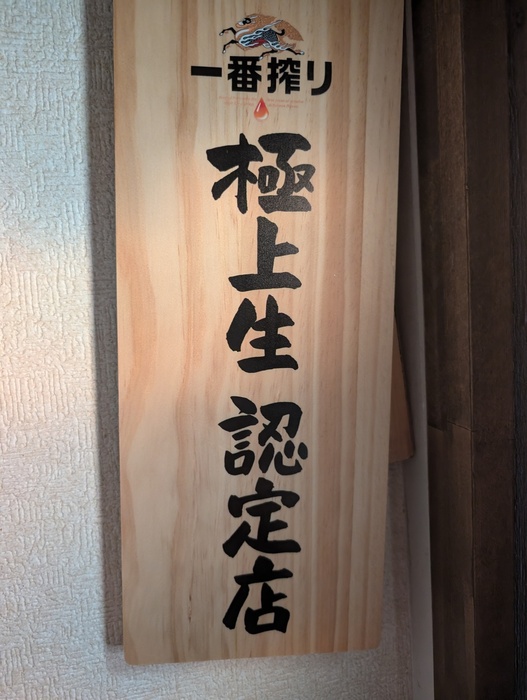 一番搾り
極上生 認定店